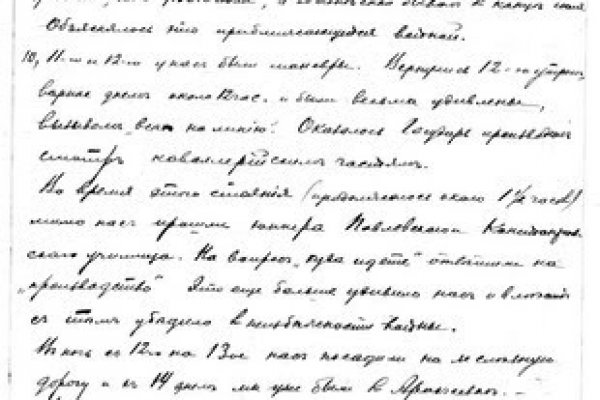 Объяснялось это приближающейся войной.
10, 11-го и 12-го у нас были маневры. Вернулись 12-го утром,
вернее днем около 12 час. и были весьма удивлены,
вызывом „всех на линию". Оказалось Государь производил
смотр кавалерийским частям.
Во время этого стояния (продолжалось около 1½ часов)
мимо нас прошли юнкера Павловского
училища. На вопрос „куда идете" ответили на
„производство" Это еще больше удивило нас и
с тем убедило в неизбежности войны.
В ночь с 12-го на 13-ое нас посадили на железную
дорогу и 14 днем мы уже были в